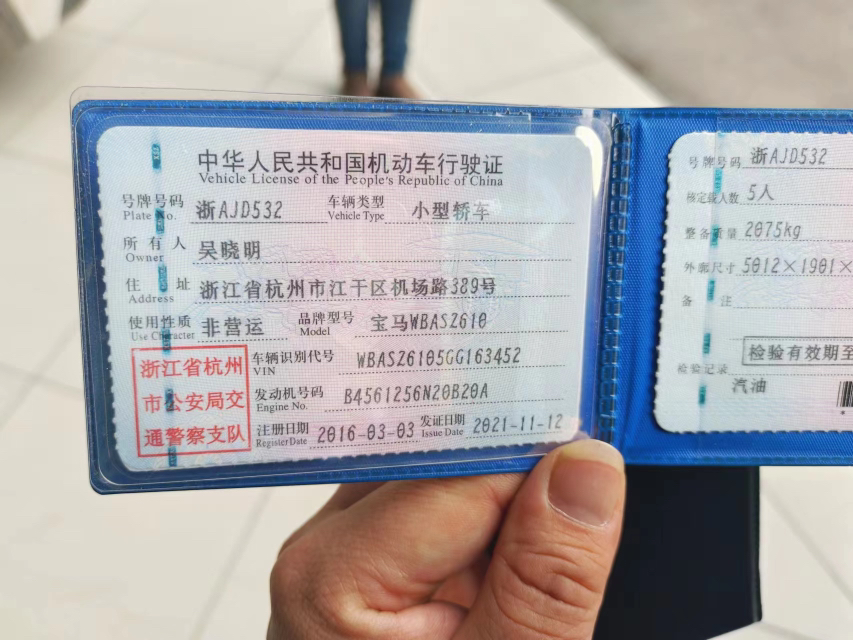 中华人民共和国机动车行驶证
Vehicle License of the People's Republic of China
号牌号码 浙AJD532 车辆类型 小型轿车
Plate No. Vehicle Type
所有人 吴晓明
Owner
住址 浙江省杭州市江干区机场路389号
Address
使用性质 非营运 品牌型号 宝马WBASZ610
Use Character Model
浙江省杭州
市公安局交
通警察支队
车辆识别代号 WBASZ6105GG163452
VIN
发动机号码 B4561256N20B20A
Engine No.
注册日期 2016-03-03 发证日期 2021-11-12
Register Date Issue Date
号牌号码 浙AJD532
核定载人数 5人
整备质量 2075kg
外廓尺寸 5012×1901×
备注
检验有效期至
检验记录
汽油